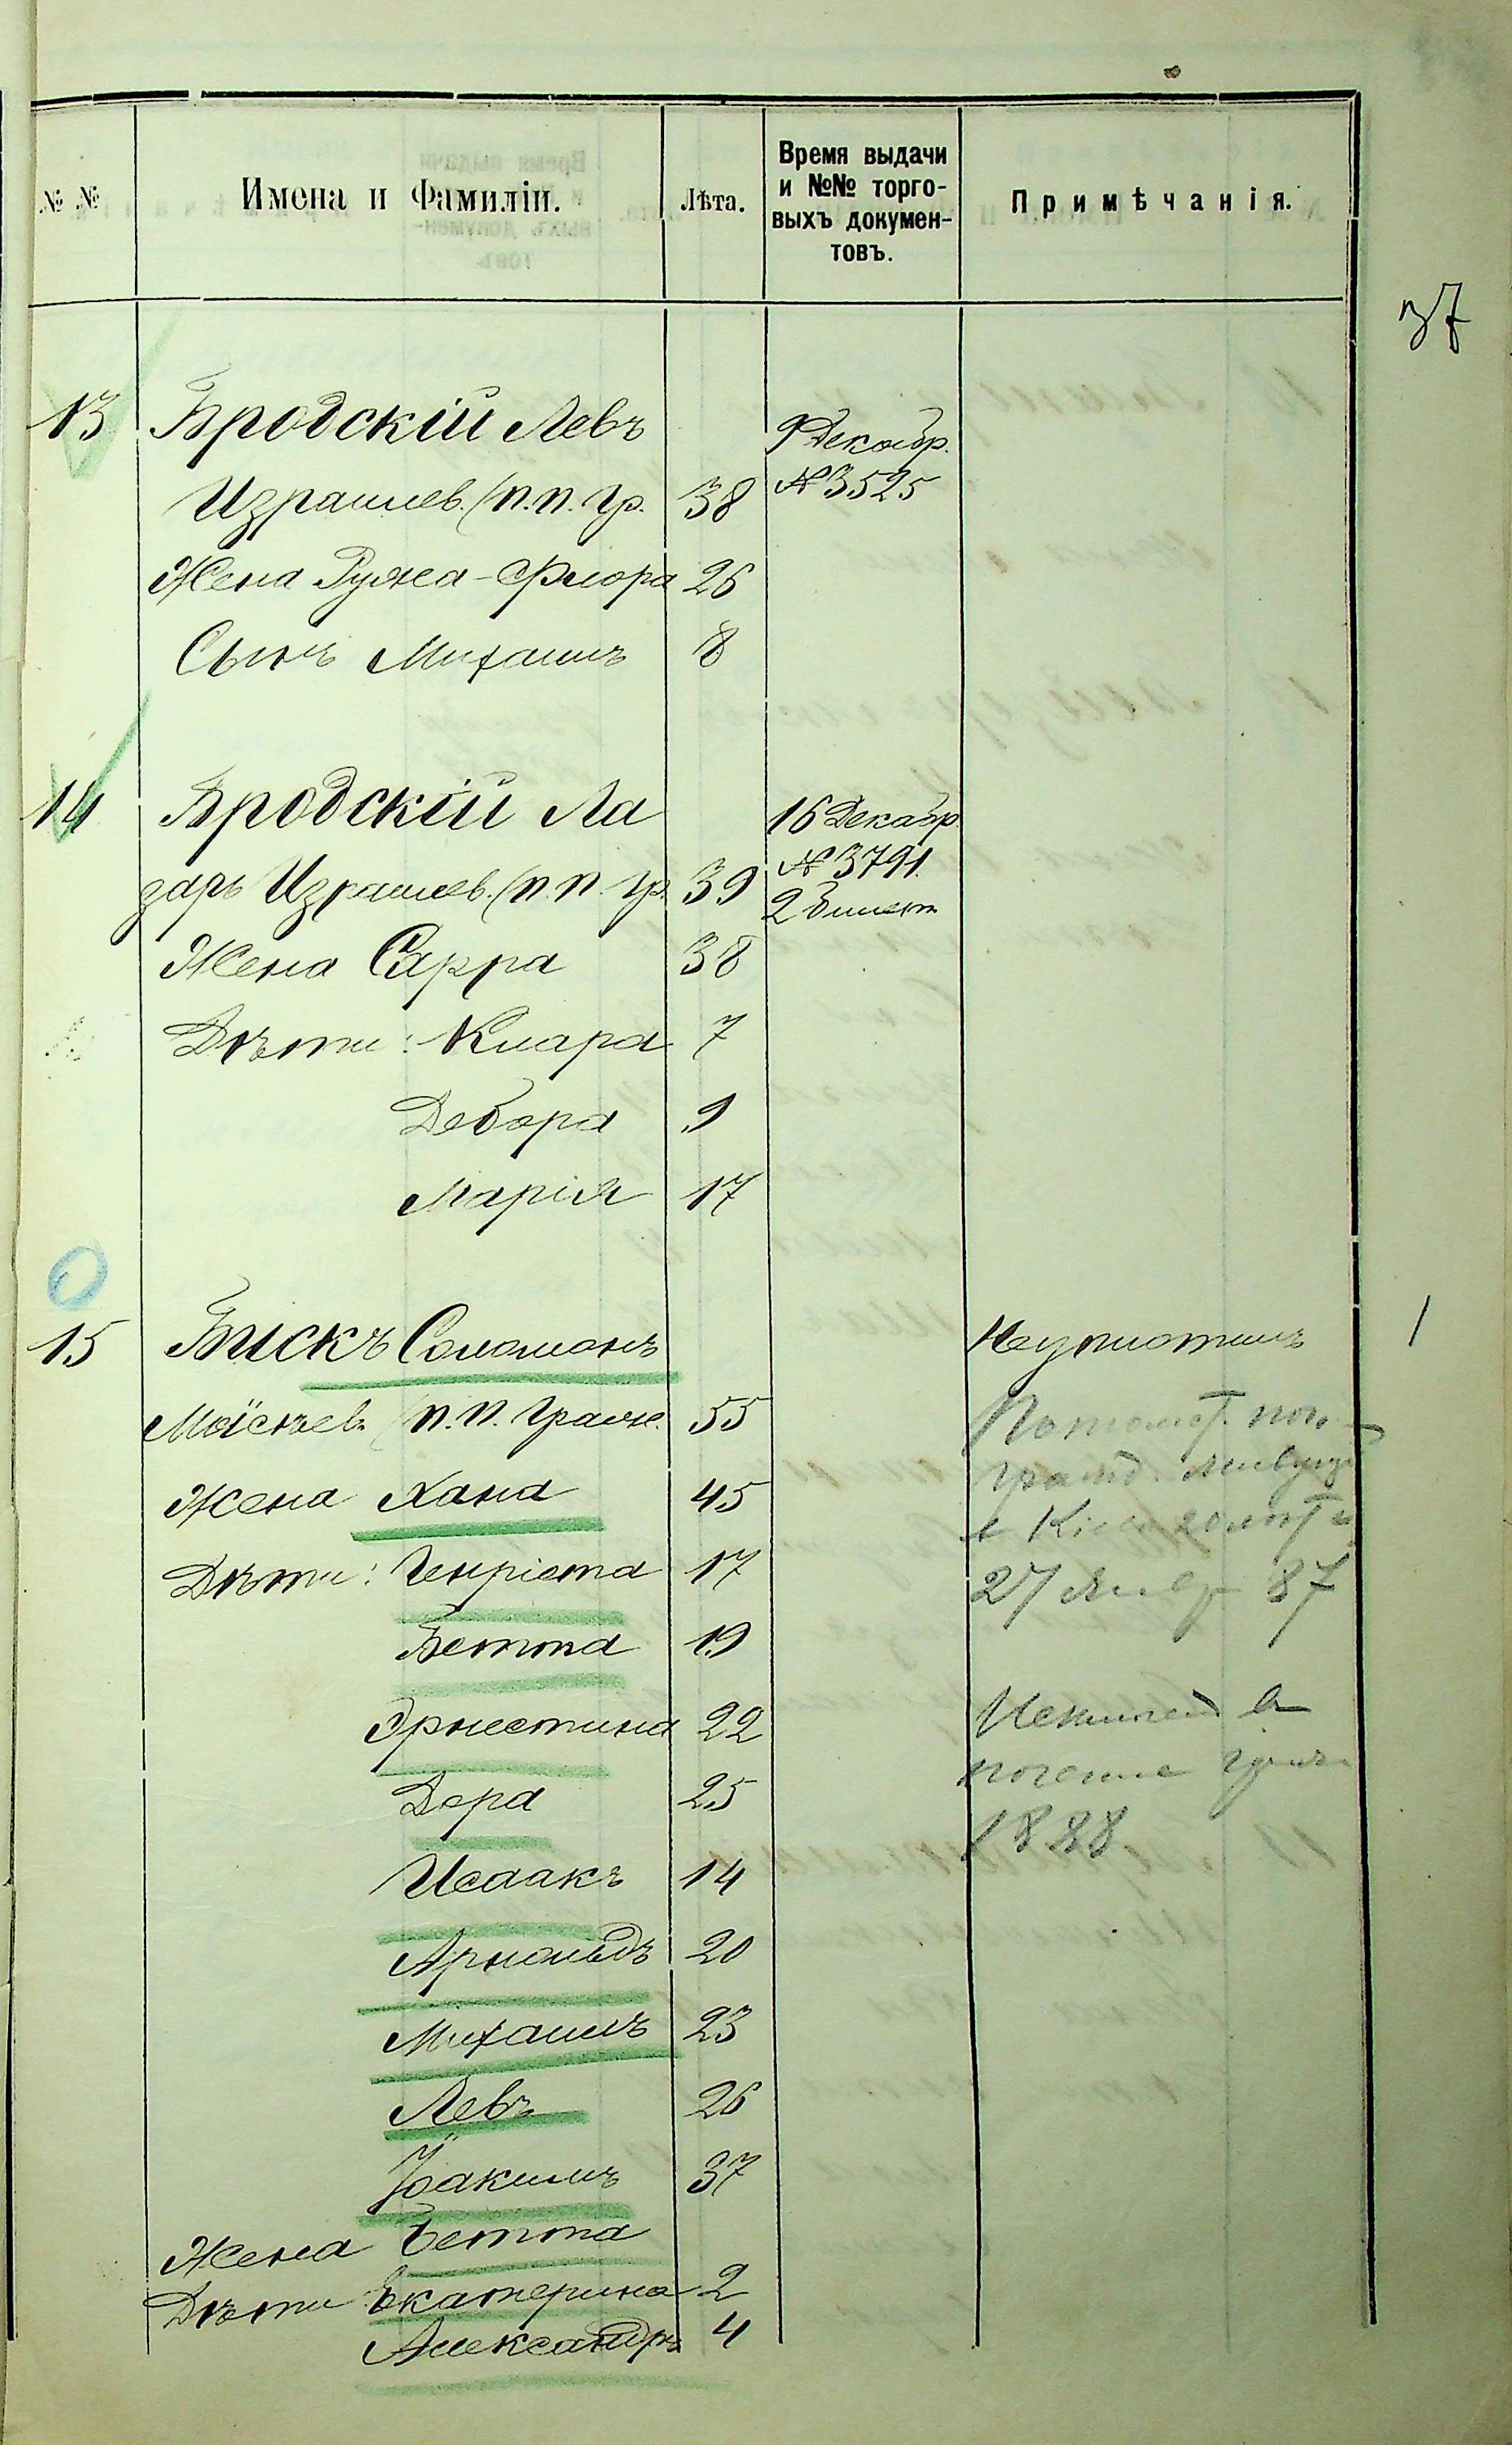 № №
Имена и Фамиліи.
Лѣта.
Время выдачи
и №№ торго-
выхъ докумен-
товъ.
Примѣчанія.
37
13 Бродскій Левъ
9 Декабр.
Израилев. (п. п. гр. 38 № 3525
Жена Ружа-Флора 26
Сынъ Михаилъ 8
14 Бродскій Ла
16 Декабр.
зарь Израилев. (п. п. гр. 39 № 3791.
2 билет
Жена Сарра 38
Дѣти: Клара 7
Дебора 9
Марія 17
15 Бискъ Соломонъ
Неуплотилъ
1
Моисѣев. (п. п. гражд. 55
Потомст. поч.
гражд.
Жена Хана 45
в Кіеве
Дѣти: Генріета 17
27 Янв 87
Бетта 19
Эрнестина 22
Дора 25
1888
Исаакъ 14
Арнольдъ 20
Михаилъ 23
Левъ 26
Іоакимъ 37
Жена Бетта
Дѣти Екатерина 2
Александръ 4